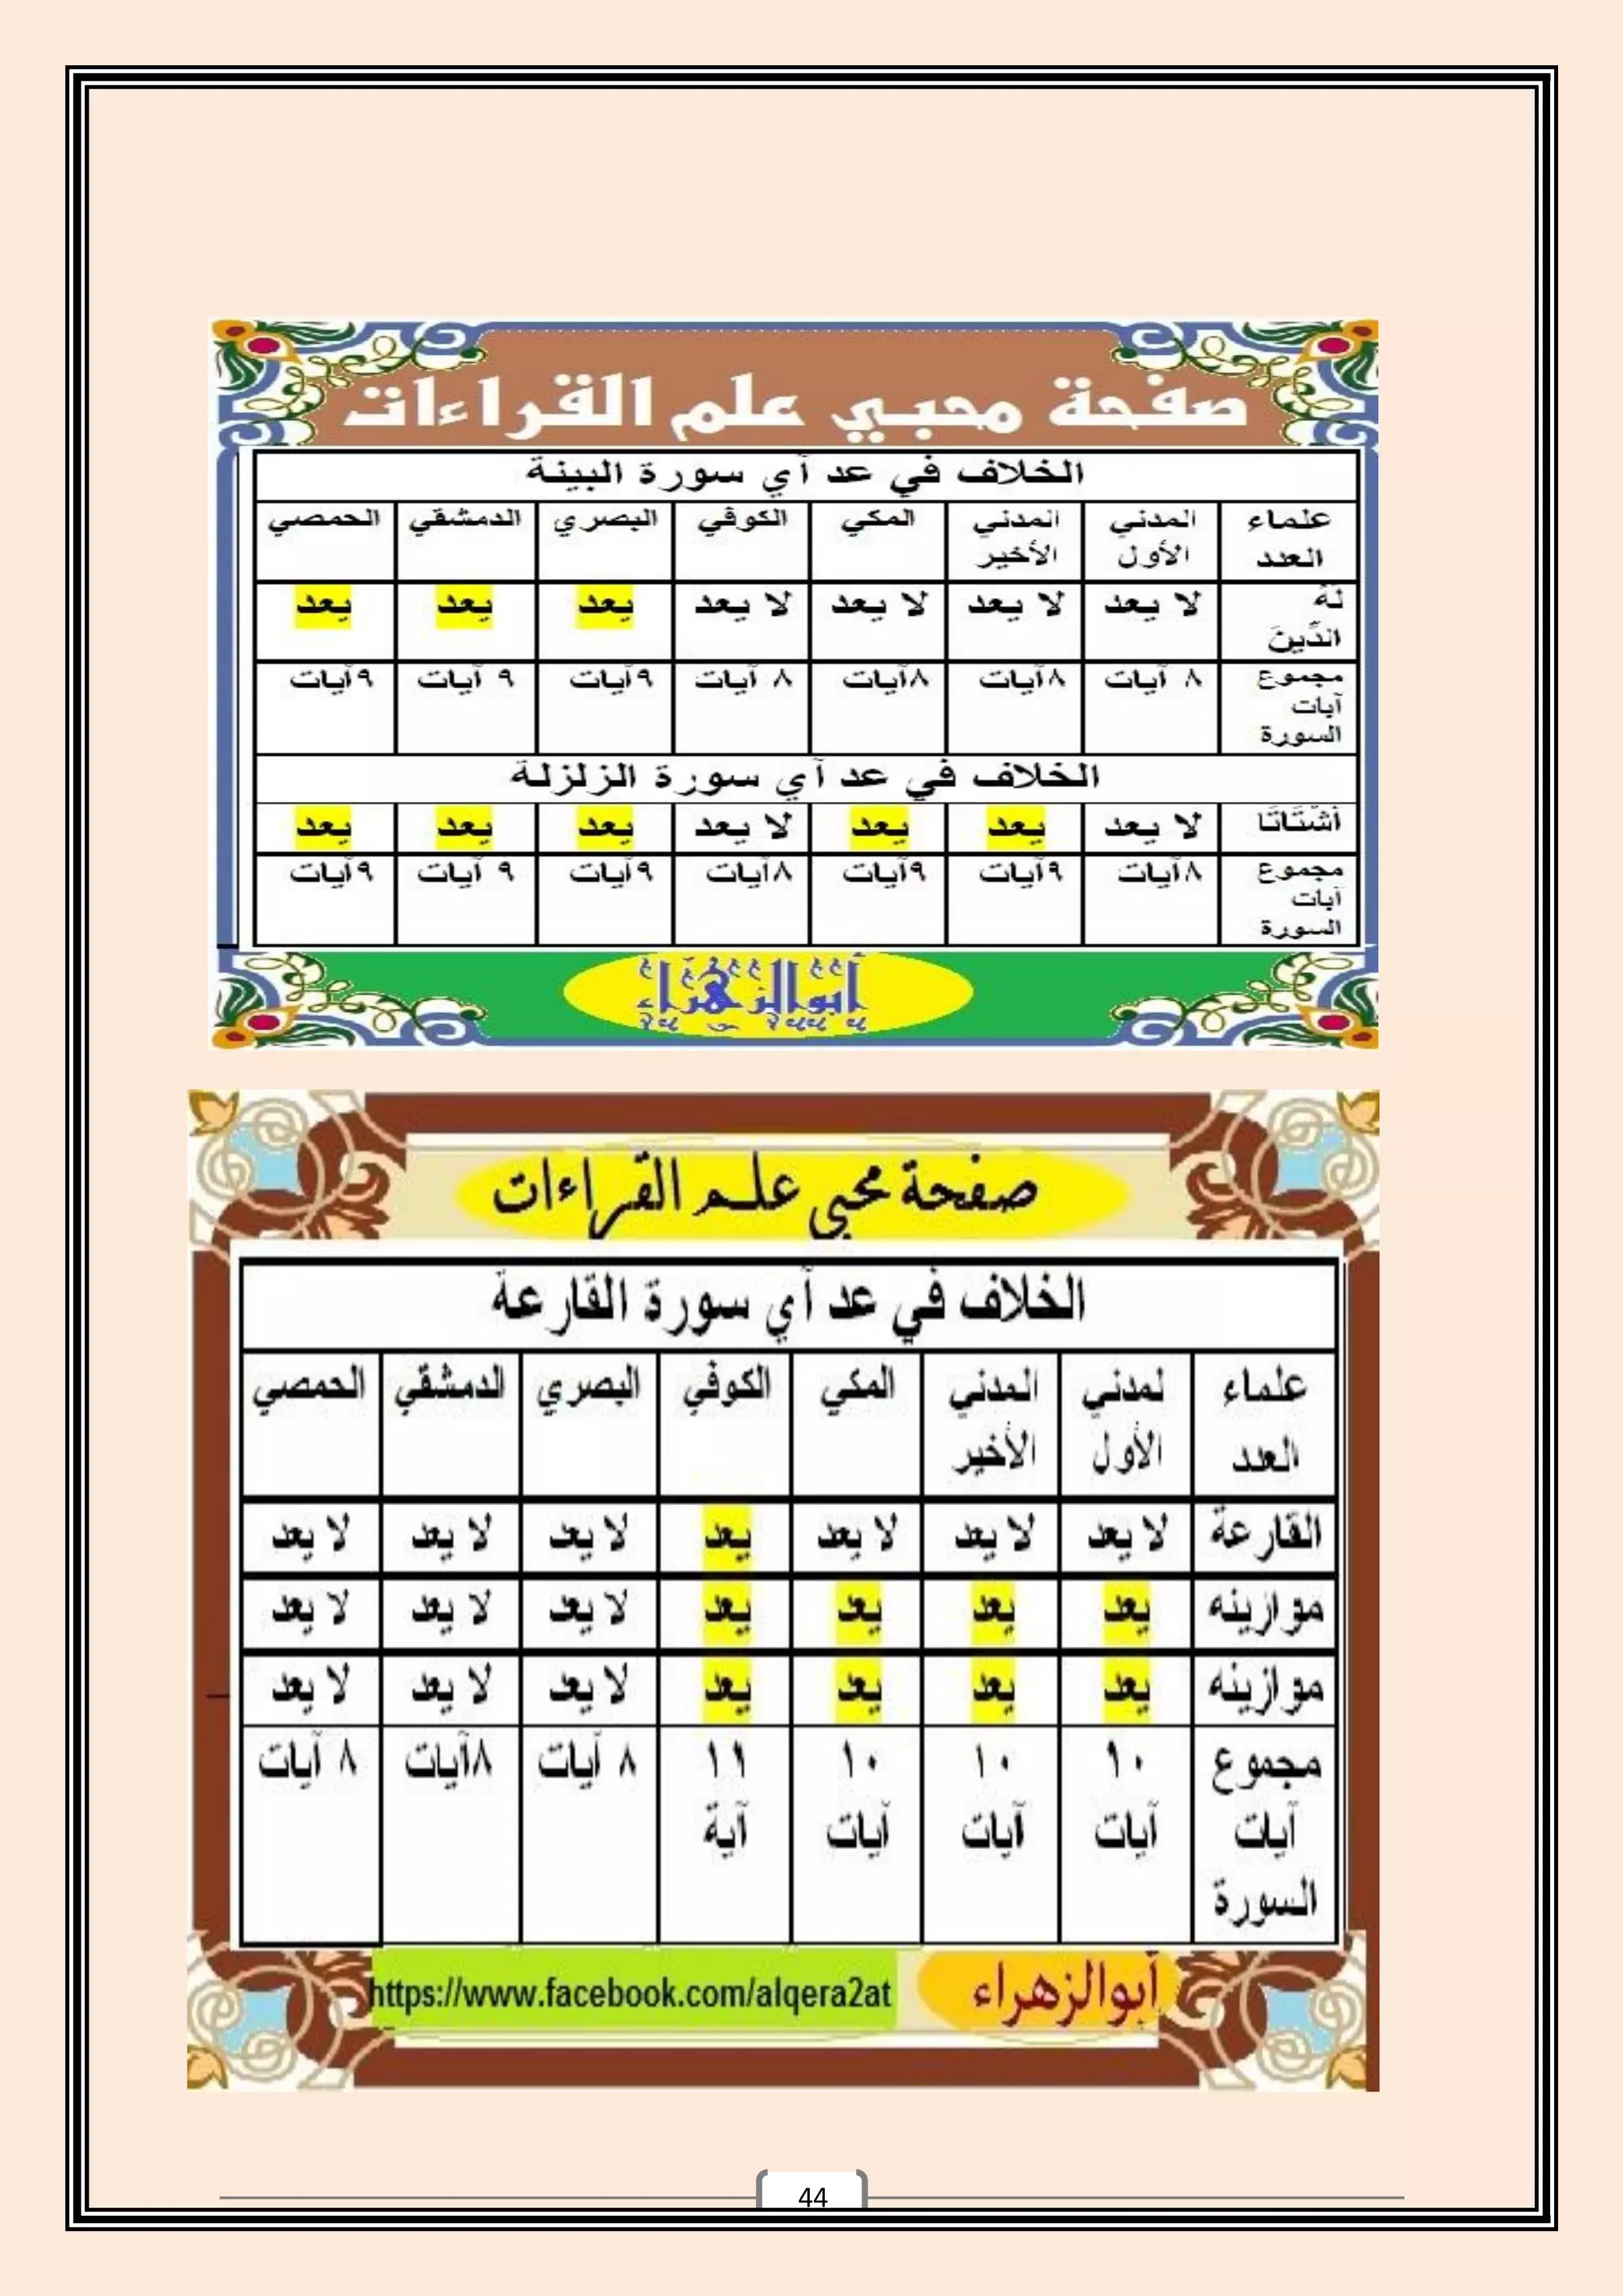 صفحة محبي علم القراءات
الخلاف في عد آي سورة البينة
علماء العدد المدني الأول المدني الأخير المكي الكوفي البصري الدمشقي الحمصي
لَهُ الدِّينَ لا يعد لا يعد لا يعد لا يعد يعد يعد يعد
مجموع آيات السورة ٨ آيات ٨آيات ٨آيات ٨ آيات ٩آيات ٩ آيات ٩آيات
الخلاف في عد آي سورة الزلزلة
أَشْتَاتًا لا يعد يعد يعد لا يعد يعد يعد يعد
مجموع آيات السورة ٨آيات ٩آيات ٩آيات ٨آيات ٩آيات ٩ آيات ٩آيات
أبوالزهراء
صفحة محبي علم القراءات
الخلاف في عد آي سورة القارعة
علماء العدد لمدني الأول المدني الأخير المكي الكوفي البصري الدمشقي الحمصي
القارعة لا يعد لا يعد لا يعد يعد لا يعد لا يعد لا يعد
موازينه يعد يعد يعد يعد لا يعد لا يعد لا يعد
موازينه يعد يعد يعد يعد لا يعد لا يعد لا يعد
مجموع آيات السورة ١٠ آيات ١٠ آيات ١٠ آيات ١١ آية ٨ آيات ٨آيات ٨ آيات
أبوالزهراء https://www.facebook.com/alqera2at
44